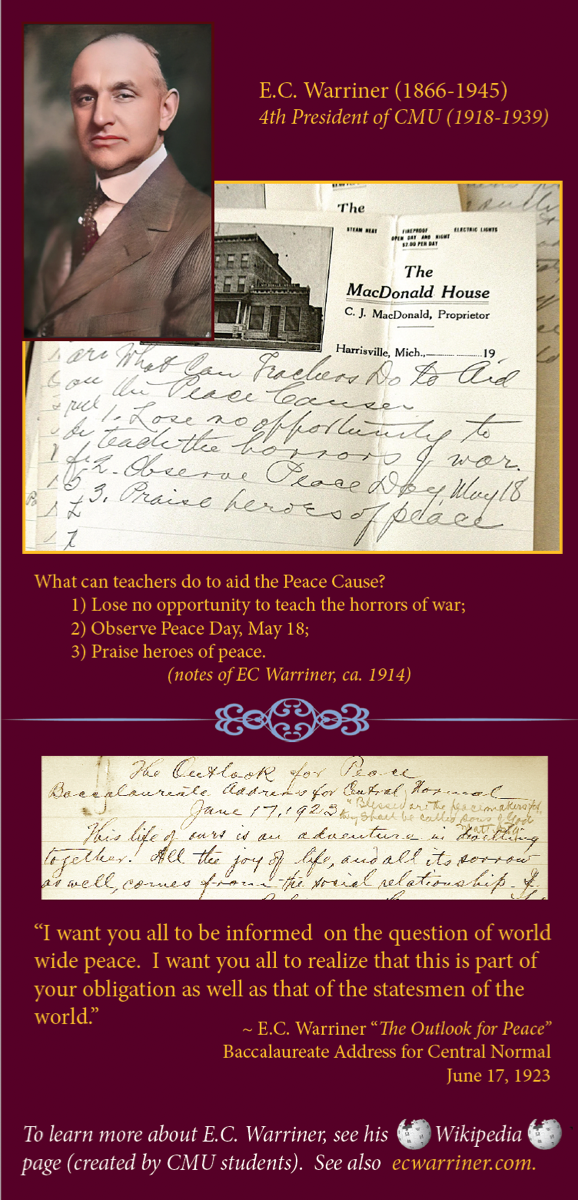 E.C. Warriner (1866-1945)
4th President of CMU (1918-1939)
The
STEAM HEAT
FIREPROOF
OPEN DAY AND NIGHT
$2.00 PER DAY
ELECTRIC LIGHTS
The
MacDonald House
C. J. MacDonald, Proprietor
Harrisville, Mich., 19
What Can Teachers Do to Aid
the Peace Cause.
1. Lose no opportunity to
teach the horrors of war.
2. Observe Peace Day, May 18
3. Praise heroes of peace
What can teachers do to aid the Peace Cause?
1) Lose no opportunity to teach the horrors of war;
2) Observe Peace Day, May 18;
3) Praise heroes of peace.
(notes of EC Warriner, ca. 1914)
The Outlook for Peace
Baccalaureate Address for Central Normal
June 17, 1923
"Blessed are the peacemakers for
they shall be called sons of God"
This life of ours is an adventure in dwelling
together. All the joy of life, and all its sorrow
as well, comes from the social relationship.
“I want you all to be informed on the question of world
wide peace. I want you all to realize that this is part of
your obligation as well as that of the statesmen of the
world.”
~ E.C. Warriner “The Outlook for Peace”
Baccalaureate Address for Central Normal
June 17, 1923
To learn more about E.C. Warriner, see his Wikipedia
page (created by CMU students). See also ecwarriner.com.